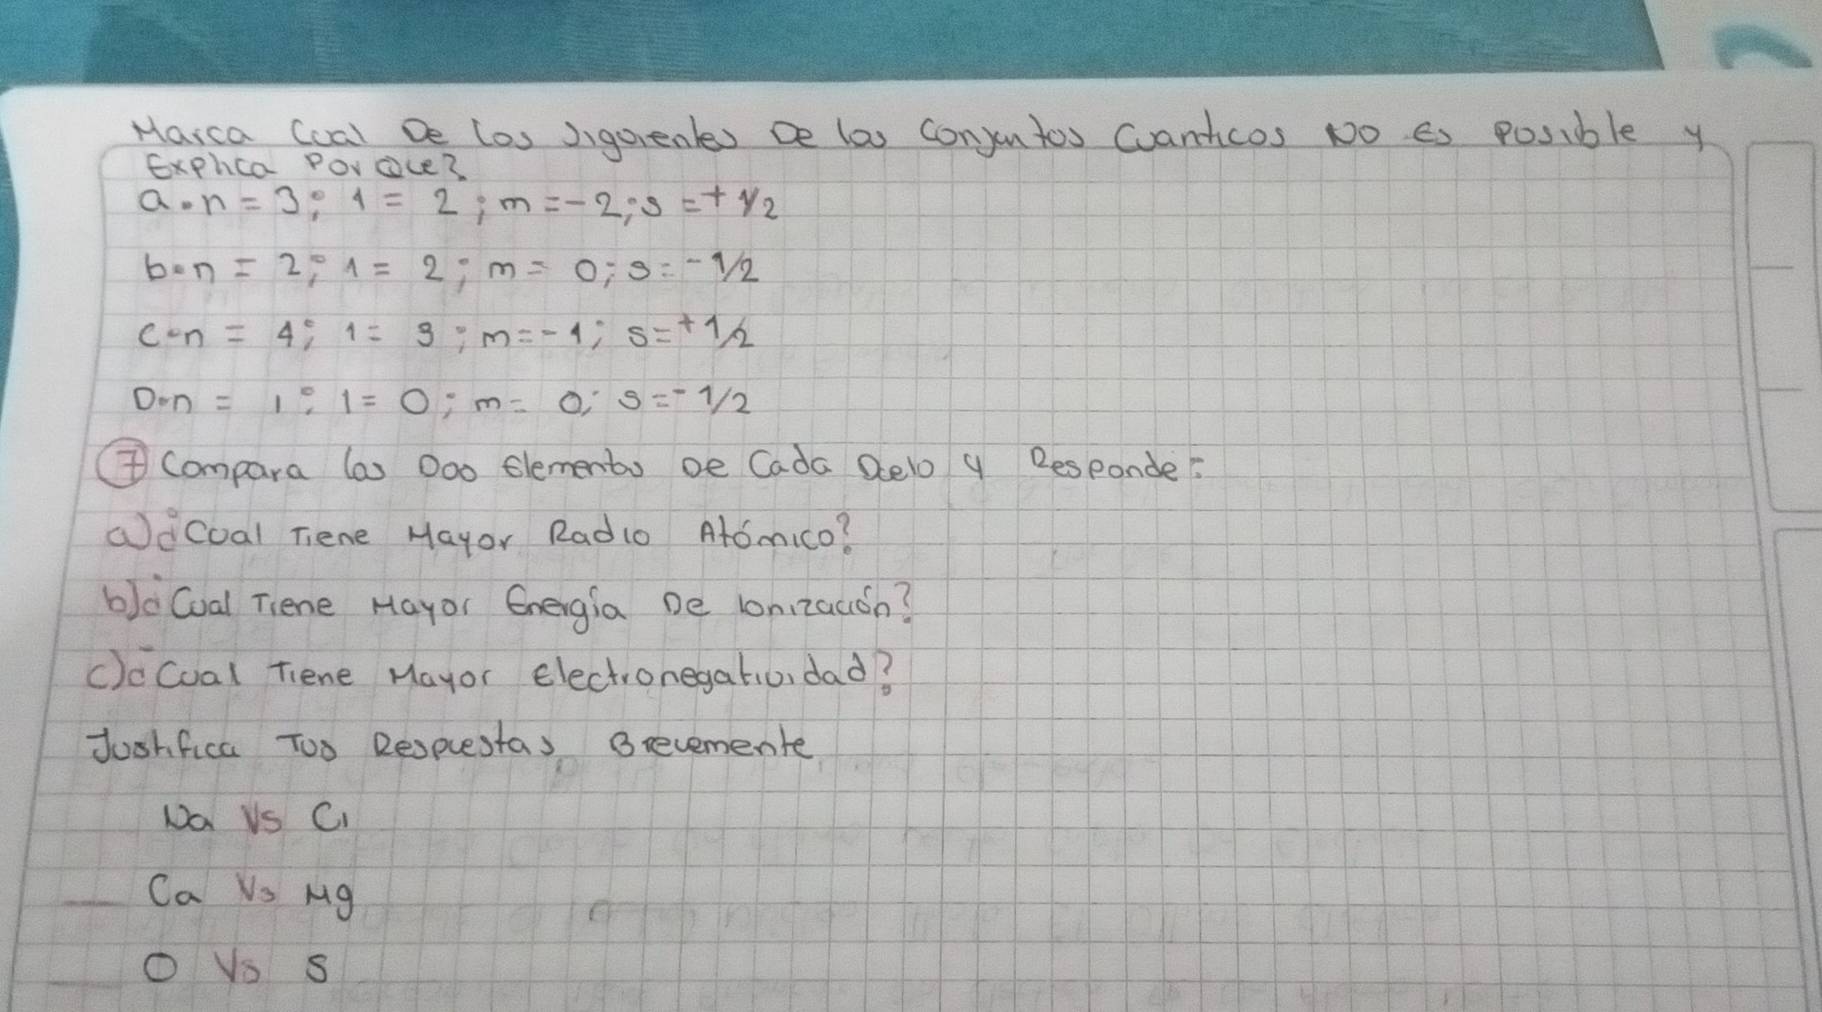 Marca Cual De los siguientes De los conjuntos Cuanticos NO Es posible y
Explica Por Que?
a. n = 3; l = 2; m = -2; s = + 1/2
b. n = 2; l = 2; m = 0; s = - 1/2
c. n = 4; l = 3; m = -1; s = + 1/2
D. n = 1; l = 0; m = 0; s = - 1/2
⑦ Compara los Dos Elementos De Cada Duelo y Responde:
a) ¿Cual Tiene Mayor Radio Atómico?
b) ¿Cual Tiene Mayor Energía De Ionización?
c) ¿Cual Tiene Mayor Electronegatividad?
Justifica Tus Respuestas Brevemente
Na Vs Cl
Ca Vs Mg
O Vs S